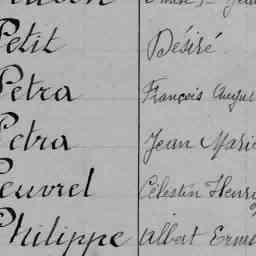 Petit Désiré
Petra François
Petra Jean Marie
Peuvrel Célestin Henri
Philippe Albert